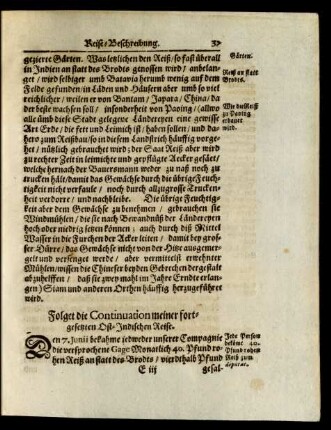 Reise/Beschreibung. 37
gezierte Gärten. Was letzlichen den Reiß/ so fast überall
in Indien an statt des Brodts genossen wird/ anbelan-
get/ wird selbiger umb Batavia herumb wenig auf dem
Felde gefunden/ in Läden und Häusern aber umb so viel
reichlicher/ weilen er von Bantam/ Japara/ China/ da
der beste wachsen soll/ insonderheit von Paoing/ (allwo
alle umb diese Stadt gelegene Ländereyen eine gewisse
Art Erde/ die fett und Leimich ist/ haben sollen/ und da-
hero zum Reißbau/ so in diesem Landstrich häuffig vorge-
het/ nützlich gebrauchet wird; der Saat Reiß aber wird
zu rechter Zeit in leimichte und gepflügte Aecker gesäet/
welche hernach der Bauersmann weder zu naß noch zu
trucken hält/ damit das Gewächs durch die übrige Feuch-
tigkeit nicht verfaule/ noch durch allzugrosse Trucken-
heit verdorre/ und nachbleibe. Die übrige Feuchtig-
keit aber dem Gewächse zu benehmen/ gebrauchen sie
Windmühlen/ die sie nach Bewandnüß der Ländereyen
hoch oder niedrig setzen können; auch durch diß Mittel
Wasser in die Furchen der Acker leiten/ damit bey gros-
ser Dürre/ das Gewächse nicht von der Hitze ausgemer-
gelt und versenget werde/ aber vermittelst erwehnter
Mühlen/ wissen die Chineser beyden Gebrechen dergestalt
abzuhelffen/ daß sie zwey mahl im Jahre Erndte erlan-
gen) Siam und anderen Orthen häuffig herzugeführet
wird.
Folget die Continuation meiner fort-
gesetzten Ost-Indischen Reise.
Den 7. Junii bekahme jedweder unserer Compagnie
die versprochene Gage Monatlich 40. Pfund ro-
hen Reiß an statt des Brodts/ vierdthalb Pfund
E iij gesal-
Gärten.
Reiß an statt
Brodts.
Wie der Reiß
zu Paoing
erbauet
wird.
Jede Person
bekömt 40.
Pfund rohen
Reiß zum
deputat.